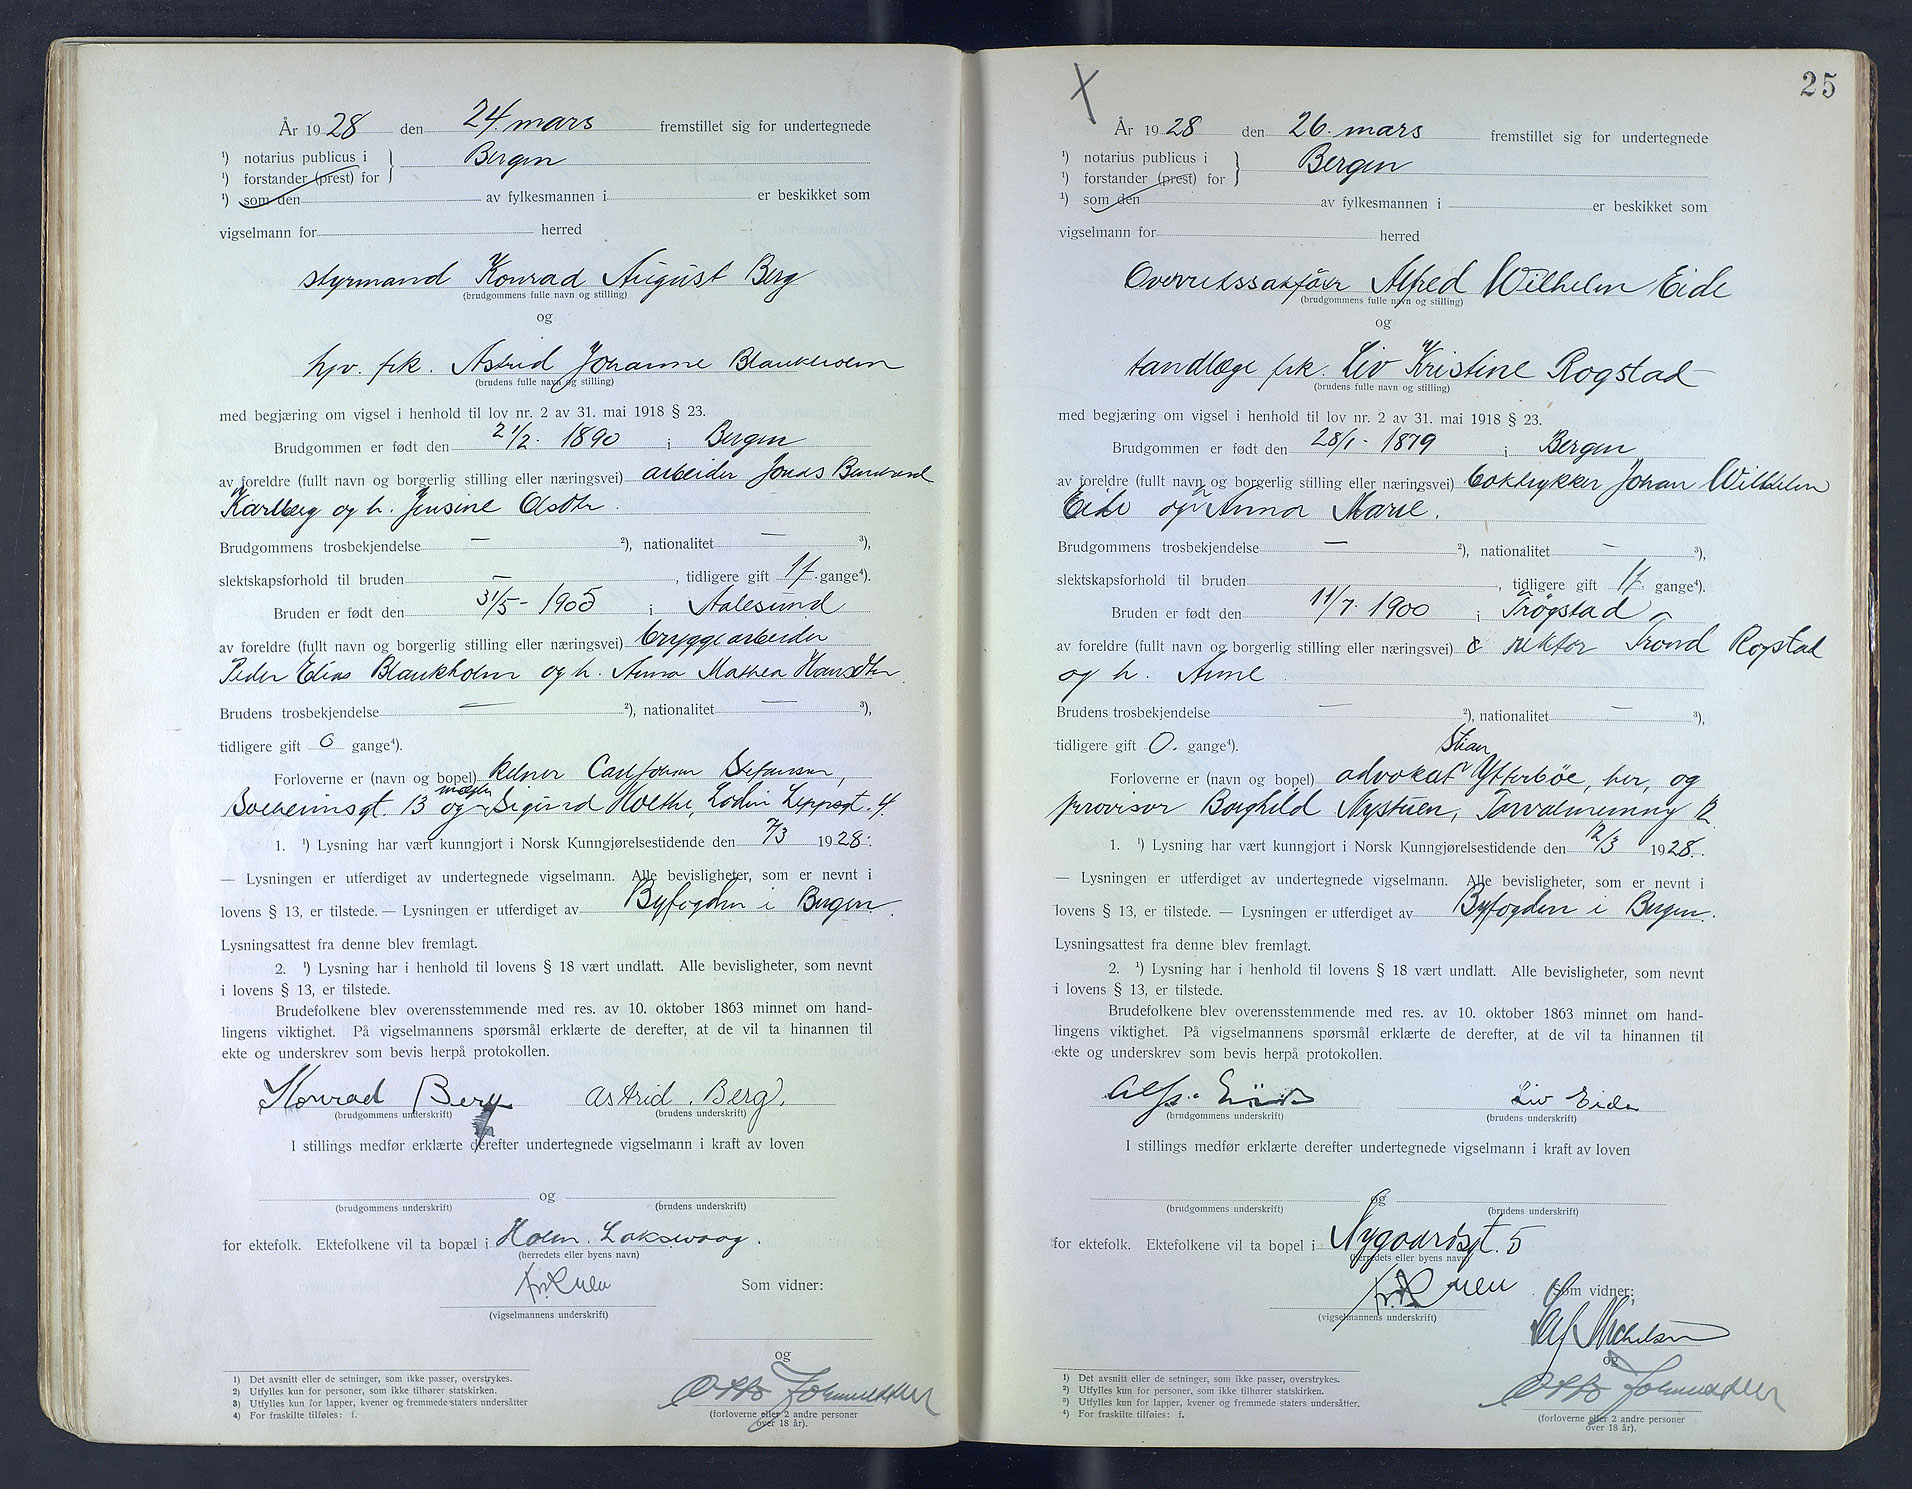 År 1928 den 24. mars fremstillet sig for undertegnede
¹) notarius publicus i } Bergen
¹) forstander (prest) for
¹) som den av fylkesmannen i er beskikket som
vigselmann for herred
styrmand Konrad August Berg
(brudgommens fulle navn og stilling)
og
hjv. frk. Astrid Johanne Blankholm
(brudens fulle navn og stilling)
med begjæring om vigsel i henhold til lov nr. 2 av 31. mai 1918 § 23.
Brudgommen er født den 21/2. 1890 i Bergen
av foreldre (fullt navn og borgerlig stilling eller næringsvei) arbeider Jonas
Karlberg og h. Jensine Olsdtr.
Brudgommens trosbekjendelse — ²), nationalitet — ³),
slektskapsforhold til bruden — , tidligere gift 1 f. gange⁴).
Bruden er født den 31/5 - 1905 i Aalesund
av foreldre (fullt navn og borgerlig stilling eller næringsvei) bryggearbeider
Peder Elias Blankholm og h. Anna Mathea Hansdtr.
Brudens trosbekjendelse — ²), nationalitet — ³),
tidligere gift 0 gange⁴).
Forloverne er (navn og bopel) kelner Carl Johan Stefansen,
Solheimsgt. 13 og mægler Sigurd Holthe, Lodin Leppsgt. 4.
1. ¹) Lysning har vært kunngjort i Norsk Kunngjørelsestidende den 7/3 1928.
— Lysningen er utferdiget av undertegnede vigselmann. Alle bevisligheter, som er nevnt i
lovens § 13, er tilstede. — Lysningen er utferdiget av Byfogden i Bergen.
Lysningsattest fra denne blev fremlagt.
2. ¹) Lysning har i henhold til lovens § 18 vært undlatt. Alle bevisligheter, som nevnt
i lovens § 13, er tilstede.
Brudefolkene blev overensstemmende med res. av 10. oktober 1863 minnet om hand-
lingens viktighet. På vigselmannens spørsmål erklærte de derefter, at de vil ta hinannen til
ekte og underskrev som bevis herpå protokollen.
Konrad Berg Astrid. Berg.
(brudgommens underskrift) (brudens underskrift)
I stillings medfør erklærte derefter undertegnede vigselmann i kraft av loven
og
(brudgommens underskrift) (brudens underskrift)
for ektefolk. Ektefolkene vil ta bopæl i Holen. Laksevaag.
(herredets eller byens navn)
Som vidner:
(vigselmannens underskrift)
og
Otto
(forloverne eller 2 andre personer
over 18 år).
¹) Det avsnitt eller de setninger, som ikke passer, overstrykes.
²) Utfylles kun for personer, som ikke tilhører statskirken.
³) Utfylles kun for lapper, kvener og fremmede staters undersåtter
⁴) For fraskilte tilføies: f.
25
X
År 1928 den 26. mars fremstillet sig for undertegnede
¹) notarius publicus i } Bergen
¹) forstander (prest) for
¹) som den av fylkesmannen i er beskikket som
vigselmann for herred
Overretssakfører Alfred Wilhelm Eide
(brudgommens fulle navn og stilling)
og
tandlæge frk. Liv Kristine Rogstad
(brudens fulle navn og stilling)
med begjæring om vigsel i henhold til lov nr. 2 av 31. mai 1918 § 23.
Brudgommen er født den 28/1 - 1879 i Bergen
av foreldre (fullt navn og borgerlig stilling eller næringsvei) boktrykker Johan Wilhelm
Eide og h. Anna Marie.
Brudgommens trosbekjendelse — ²), nationalitet — ³),
slektskapsforhold til bruden , tidligere gift 1 f. gange⁴).
Bruden er født den 11/7. 1900 i Trøgstad
av foreldre (fullt navn og borgerlig stilling eller næringsvei) rektor Trond Rogstad
og h. Anne
Brudens trosbekjendelse — ²), nationalitet — ³),
tidligere gift 0. gange⁴).
Forloverne er (navn og bopel) advokat Stian Ytterbøe, her, og
provisor Borghild Nystuen, Torvalmenning 12
1. ¹) Lysning har vært kunngjort i Norsk Kunngjørelsestidende den 12/3 1928.
— Lysningen er utferdiget av undertegnede vigselmann. Alle bevisligheter, som er nevnt i
lovens § 13, er tilstede. — Lysningen er utferdiget av Byfogden i Bergen.
Lysningsattest fra denne blev fremlagt.
2. ¹) Lysning har i henhold til lovens § 18 vært undlatt. Alle bevisligheter, som nevnt
i lovens § 13, er tilstede.
Brudefolkene blev overensstemmende med res. av 10. oktober 1863 minnet om hand-
lingens viktighet. På vigselmannens spørsmål erklærte de derefter, at de vil ta hinannen til
ekte og underskrev som bevis herpå protokollen.
Alf. Eide Liv Eide
(brudgommens underskrift) (brudens underskrift)
I stillings medfør erklærte derefter undertegnede vigselmann i kraft av loven
og
(brudgommens underskrift) (brudens underskrift)
for ektefolk. Ektefolkene vil ta bopel i Nygaardsgt. 5
(herredets eller byens navn)
Som vidner:
(vigselmannens underskrift)
Michelsen
og
Otto
(forloverne eller 2 andre personer
over 18 år).
¹) Det avsnitt eller de setninger, som ikke passer, overstrykes.
²) Utfylles kun for personer, som ikke tilhører statskirken.
³) Utfylles kun for lapper, kvener og fremmede staters undersåtter.
⁴) For fraskilte tilføies: f.